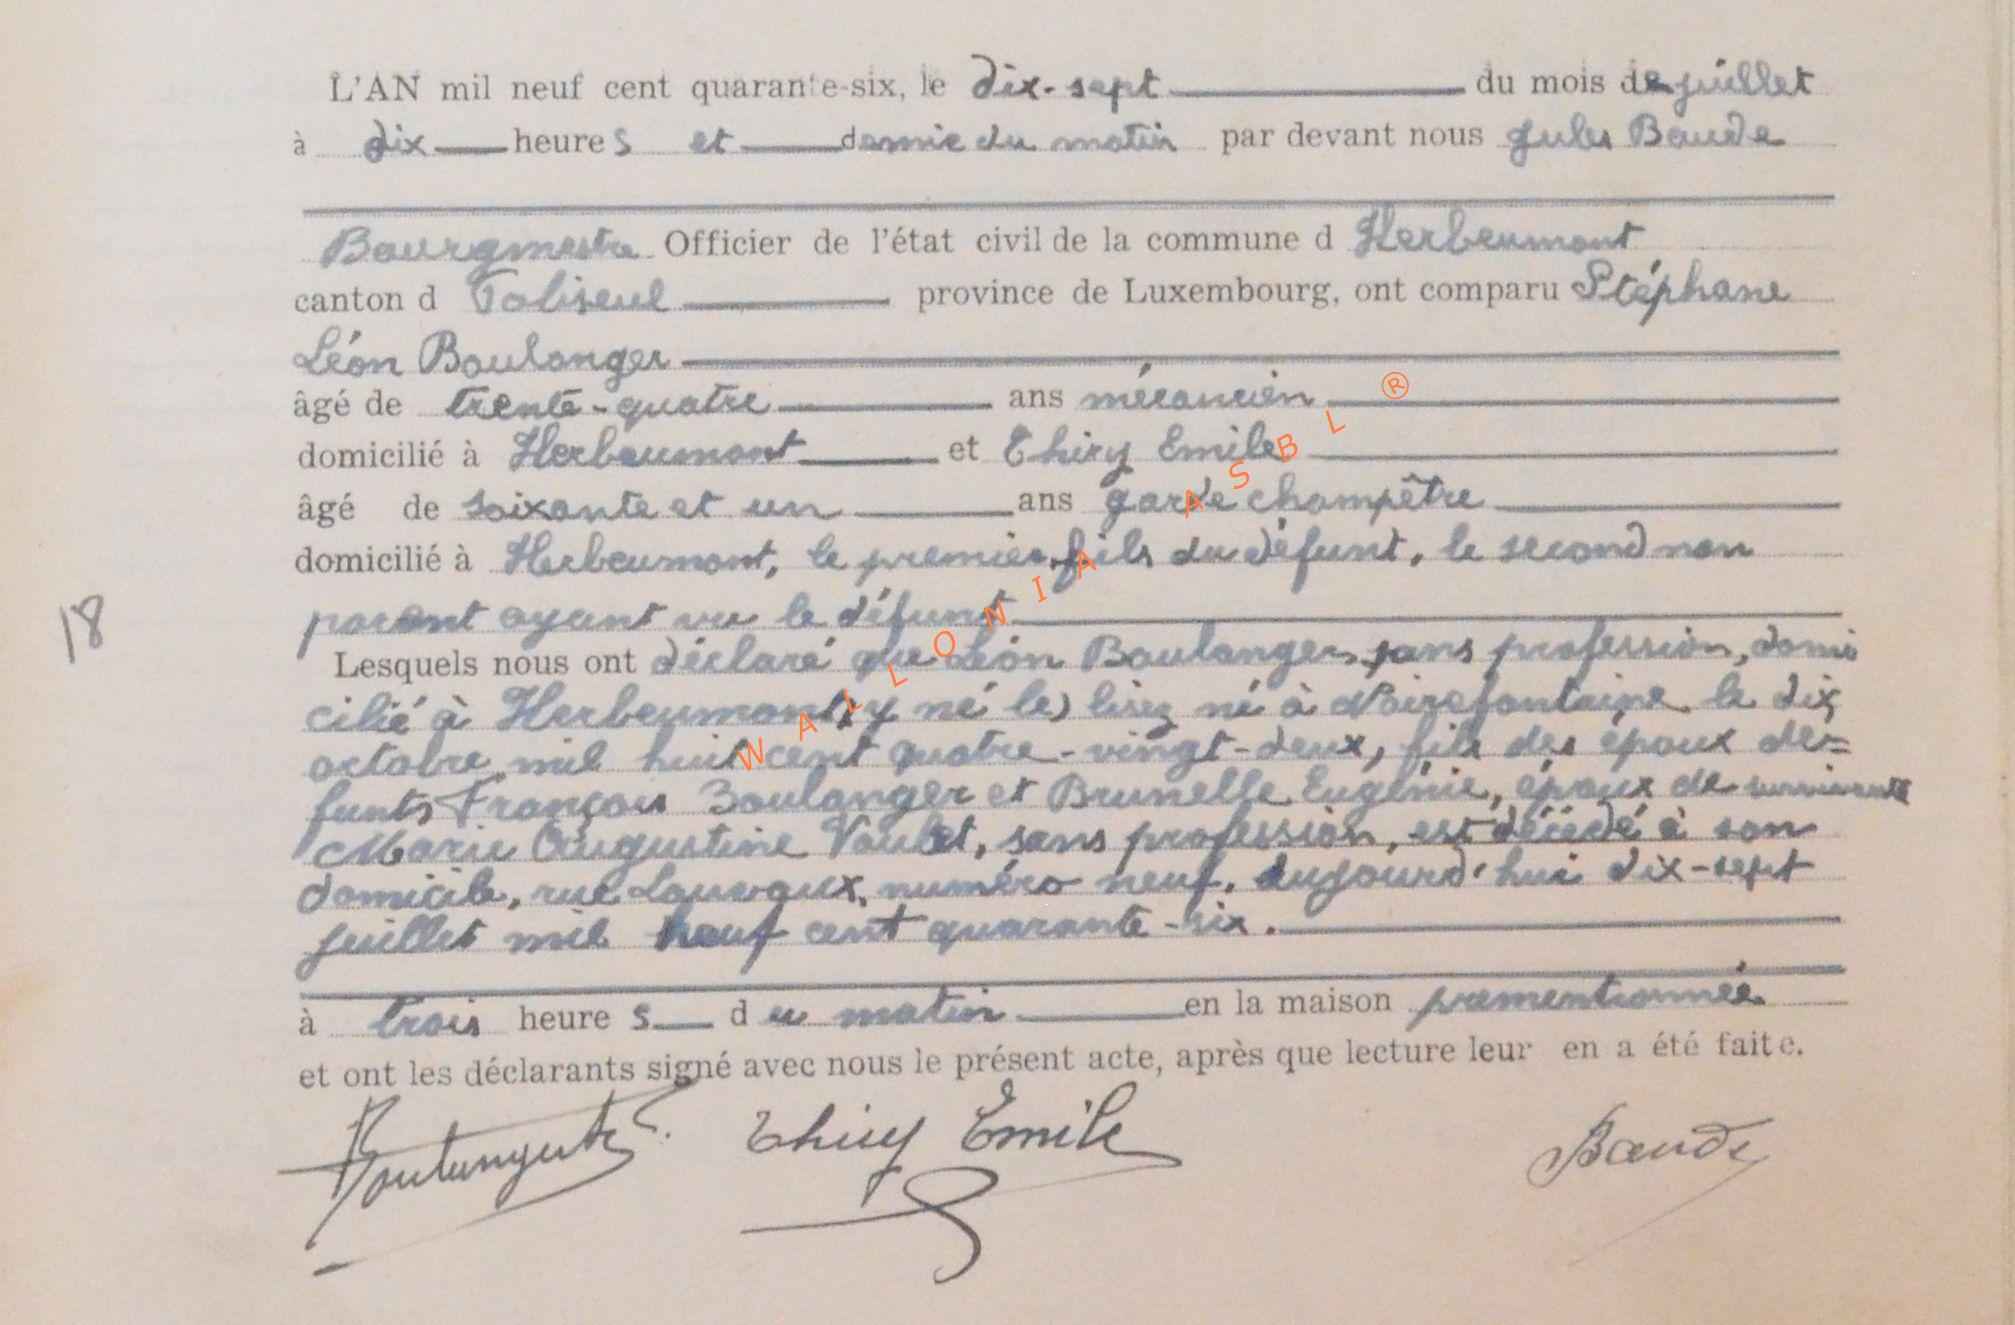 L'AN mil neuf cent quarante-six, le dix-sept du mois de juillet
à dix heures et demie du matin par devant nous Jules Baude
Bourgmestre Officier de l'état civil de la commune d Herbeumont
canton d Paliseul province de Luxembourg, ont comparu Stéphane
Léon Boulanger
âgé de trente-quatre ans mécanicien
domicilié à Herbeumont et Thiry Emile
âgé de soixante et un ans garde champêtre
domicilié à Herbeumont, le premier fils du défunt, le second non
parent ayant vu le défunt
18
Lesquels nous ont déclaré que Léon Boulanger, sans profession, domi
cilié à Herbeumont, y né le) lisez né à Noirefontaine le dix
octobre mil huit cent quatre-vingt-deux, fils des époux dé=
funts François Boulanger et Brunelle Eugénie, époux de survivante
Marie Augustine Vaulet, sans profession, est décédé à son
domicile, rue Lauvaux, numéro neuf, aujourd'hui dix-sept
juillet mil neuf cent quarante-six.
à trois heures du matin en la maison prementionnée
et ont les déclarants signé avec nous le présent acte, après que lecture leur en a été faite.
Thiry Emile Baude
WALLONIA ASBL ®